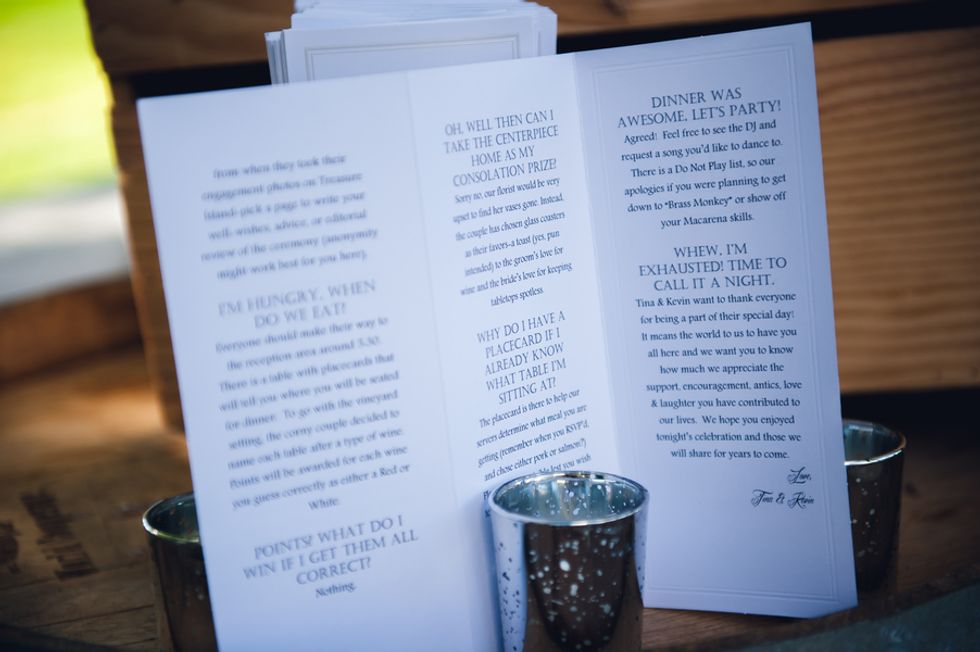 from when they took their
engagement photos on Treasure
Island-pick a page to write your
well-wishes, advice, or editorial
review of the ceremony (anonymity
might work best for you here).
I'M HUNGRY, WHEN
DO WE EAT?
Everyone should make their way to
the reception area around 5:30.
There is a table with placecards that
will tell you where you will be seated
for dinner. To go with the vineyard
setting, the corny couple decided to
name each table after a type of wine.
Points will be awarded for each wine
you guess correctly as either a Red or
White.
POINTS? WHAT DO I
WIN IF I GET THEM ALL
CORRECT?
Nothing.
OH, WELL THEN CAN I
TAKE THE CENTERPIECE
HOME AS MY
CONSOLATION PRIZE?
Sorry no, our florist would be very
upset to find her vases gone. Instead,
the couple has chosen glass coasters
as their favors-a toast (yes, pun
intended) to the groom's love for
wine and the bride's love for keeping
tabletops spotless.
WHY DO I HAVE A
PLACECARD IF I
ALREADY KNOW
WHAT TABLE I'M
SITTING AT?
The placecard is there to help our
servers determine what meal you are
getting (remember when you RSVP'd,
and chose either pork or salmon?)
lest you wish
DINNER WAS
AWESOME, LET'S PARTY!
Agreed! Feel free to see the DJ and
request a song you'd like to dance to.
There is a Do Not Play list, so our
apologies if you were planning to get
down to "Brass Monkey" or show off
your Macarena skills.
WHEW, I'M
EXHAUSTED! TIME TO
CALL IT A NIGHT.
Tina & Kevin want to thank everyone
for being a part of their special day!
It means the world to us to have you
all here and we want you to know
how much we appreciate the
support, encouragement, antics, love
& laughter you have contributed to
our lives. We hope you enjoyed
tonight's celebration and those we
will share for years to come.
Love,
Tina & Kevin